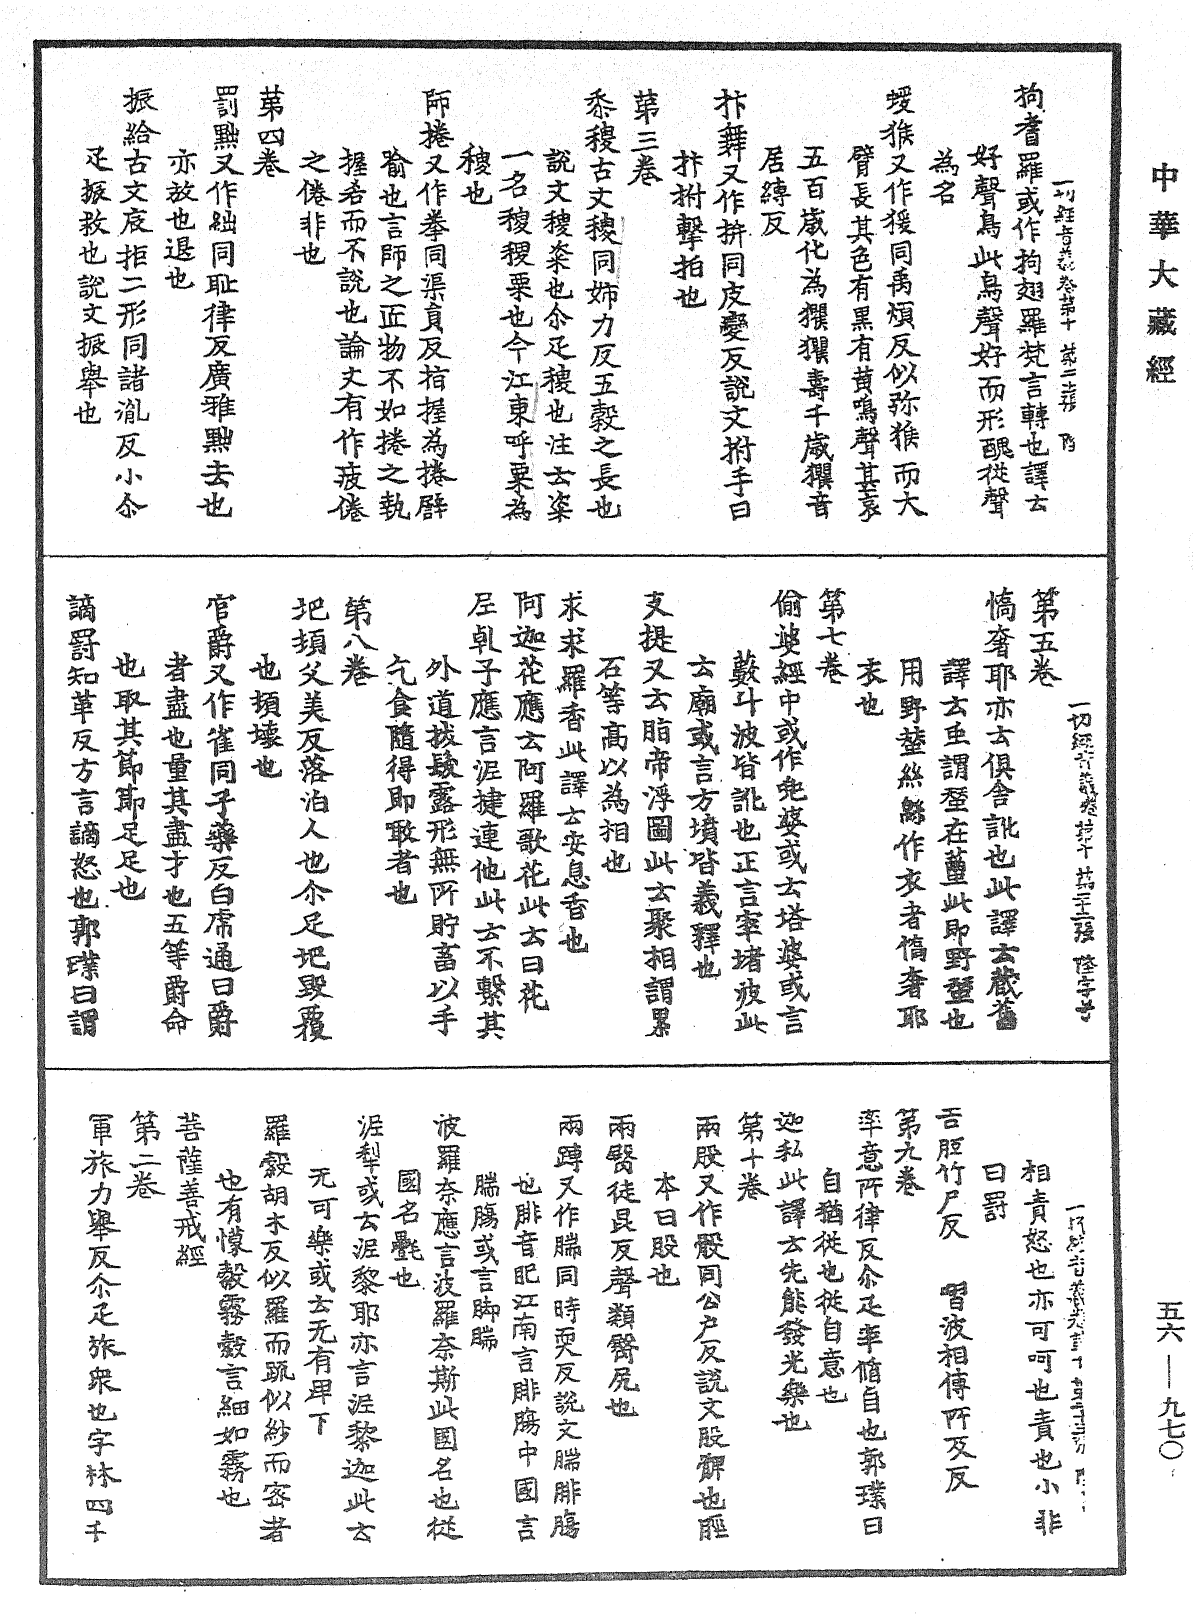 中華大藏經
五六—九七〇
一切經音義卷第十 第二張 陸
拘耆羅或作拘翅羅梵言轉也譯云
好聲鳥此鳥聲好而形醜從聲
為名
蝯猴又作猨同禹煩反似弥猴而大
臂長其色有黒有黄鳴聲甚哀
五百歲化為玃玃壽千歲玃音
居縛反
抃舞又作拚同皮變反說文拊手曰
抃拊擊拍也
第三卷
黍稷古文稷同姉力反五穀之長也
說文稷粢也尒疋稷也注云粢
一名稷稷粟也今江東呼粟為
稷也
師捲又作拳同渠貟反指握為捲廦
喻也言師之匠物不如捲之執
握𠫤而不說也論文有作疲倦
之倦非也
第四卷
罰黜又作絀同耻律反廣雅黜去也
亦放也退也
振給古文宸拒二形同諸胤反小尒
疋振救也說文振舉也
一切經音義卷第十 第二十二張 陸字号
第五卷
憍奢耶亦云俱舍訛也此譯云藏舊
譯云虫謂蠶在蠒此即野蠶也
用野蠶絲緜作衣者憍奢耶
衣也
第七卷
偷婆經中或作兜婆或云塔婆或言
藪斗波皆訛也正言窣堵波此
云廟或言方墳皆義釋也
支提又云脂帝浮圖此云聚相謂累
石等高以為相也
求求羅香此譯云安息香也
阿迦花應云阿羅歌花此云日花
尼乹子應言泥揵連他此云不繫其
外道拔髮露形無所貯畜以手
乞食隨得即噉者也
第八卷
圯損父美反落泊人也尒疋圯毀覆
也損壊也
官爵又作雀同子藥反白虎通曰爵
者盡也量其盡才也五等爵命
也取其節節足足也
謫罸知革反方言謫怒也郭璞曰謂
一切經音義卷第十 第二十三張 陸
相責怒也亦可呵也責也小非
曰罸
舌胵竹尸反　習波相傳所及反
第九卷
率意所律反尒疋率循自也郭璞曰
自猶從也從自意也
迦私此譯云先能發光樂也
第十卷
兩股又作骰同公户反說文股髀也脛
本曰股也
兩臋徒昆反聲類臋尻也
兩䏝又作腨同時耎反說文腨腓膓
也腓音肥江南言腓膓中國言
腨膓或言脚腨
波羅奈應言波羅奈斯此國名也從
國名氎也
泥犁或云泥黎耶亦言泥黎迦此云
无可樂或云无有卑下
羅縠胡木反似羅而踈似紗而密者
也有幪縠霧縠言細如霧也
菩薩善戒經
第二卷
軍旅力舉反尒疋旅衆也字林四千